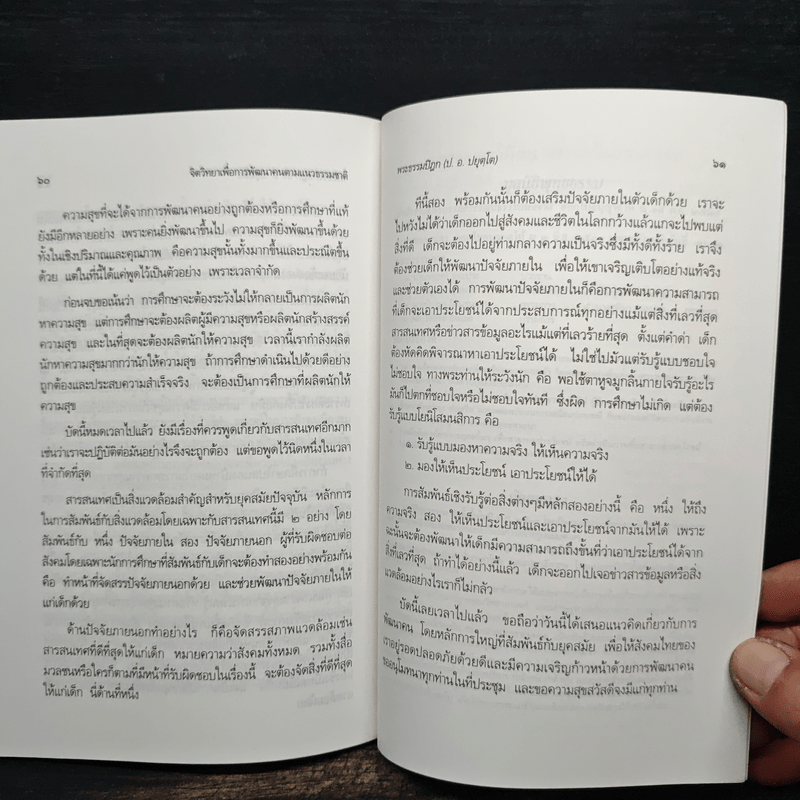 ๖๐
จิตวิทยาเพื่อการพัฒนาคนตามแนวธรรมชาติ
ความสุขที่จะได้จากการพัฒนาคนอย่างถูกต้องหรือการศึกษาที่แท้
ยังมีอีกหลายอย่าง เพราะคนยิ่งพัฒนาขึ้นไป ความสุขก็ยิ่งพัฒนาขึ้นด้วย
ทั้งในเชิงปริมาณและคุณภาพ คือความสุขนั้นทั้งมากขึ้นและประณีตขึ้น
ด้วย แต่ในที่นี้ได้แค่พูดไว้เป็นตัวอย่าง เพราะเวลาจำกัด
ก่อนจบขอเน้นว่า การศึกษาจะต้องระวังไม่ให้กลายเป็นการผลิตนัก
หาความสุข แต่การศึกษาจะต้องผลิตผู้มีความสุขหรือผลิตนักสร้างสรรค์
ความสุข และในที่สุดจะต้องผลิตนักให้ความสุข เวลานี้เรากำลังผลิต
นักหาความสุขมากกว่านักให้ความสุข ถ้าการศึกษาดำเนินไปด้วยดีอย่าง
ถูกต้องและประสบความสำเร็จจริง จะต้องเป็นการศึกษาที่ผลิตนักให้
ความสุข
บัดนี้หมดเวลาไปแล้ว ยังมีเรื่องที่ควรพูดเกี่ยวกับสารสนเทศอีกมาก
เช่นว่าเราจะปฏิบัติต่อมันอย่างไรจึงจะถูกต้อง แต่ขอพูดไว้นิดหนึ่งในเวลา
ที่จำกัดที่สุด
สารสนเทศเป็นสิ่งแวดล้อมสำคัญสำหรับยุคสมัยปัจจุบัน หลักการ
ในการสัมพันธ์กับสิ่งแวดล้อมโดยเฉพาะกับสารสนเทศนี้มี ๒ อย่าง โดย
สัมพันธ์กับ หนึ่ง ปัจจัยภายใน สอง ปัจจัยภายนอก ผู้ที่รับผิดชอบต่อ
สังคมโดยเฉพาะนักการศึกษาที่สัมพันธ์กับเด็กจะต้องทำสองอย่างพร้อมกัน
คือ ทำหน้าที่จัดสรรปัจจัยภายนอกด้วย และช่วยพัฒนาปัจจัยภายในให้
แก่เด็กด้วย
ด้านปัจจัยภายนอกทำอย่างไร ก็คือจัดสรรสภาพแวดล้อมเช่น
สารสนเทศที่ดีที่สุดให้แก่เด็ก หมายความว่าสังคมทั้งหมด รวมทั้งสื่อ
มวลชนหรือใครก็ตามที่มีหน้าที่รับผิดชอบในเรื่องนี้ จะต้องจัดสิ่งที่ดีที่สุด
ให้แก่เด็ก นี่ด้านที่หนึ่ง
พระธรรมปิฎก (ป. อ. ปยุตฺโต)
๖๑
ที่นี้สอง พร้อมกันนั้นก็ต้องเสริมปัจจัยภายในตัวเด็กด้วย เราจะ
ไปหวังไม่ได้ว่าเด็กออกไปสู่สังคมและชีวิตในโลกกว้างแล้วแกจะไปพบแต่
สิ่งที่ดี เด็กจะต้องไปอยู่ท่ามกลางความเป็นจริงซึ่งมีทั้งดีทั้งร้าย เราจึง
ต้องช่วยเด็กให้พัฒนาปัจจัยภายใน เพื่อให้เขาเจริญเติบโตอย่างแท้จริง
และช่วยตัวเองได้ การพัฒนาปัจจัยภายในก็คือการพัฒนาความสามารถ
ที่เด็กจะเอาประโยชน์ได้จากประสบการณ์ทุกอย่างแม้แต่สิ่งที่เลวที่สุด
สารสนเทศหรือข่าวสารข้อมูลอะไรแม้แต่ที่เลวร้ายที่สุด ตั้งแต่คำด่า เด็ก
ต้องหัดคิดพิจารณาหาเอาประโยชน์ได้ ไม่ใช่ไปมัวแต่รับรู้แบบชอบใจ
ไม่ชอบใจ ทางพระท่านให้ระวังนัก คือ พอใช้ตาหูจมูกลิ้นกายใจรับรู้อะไร
มันก็ไปตกที่ชอบใจหรือไม่ชอบใจทันที ซึ่งผิด การศึกษาไม่เกิด แต่ต้อง
รับรู้แบบโยนิโสมนสิการ คือ
๑. รับรู้แบบมองหาความจริง ให้เห็นความจริง
๒. มองให้เห็นประโยชน์ เอาประโยชน์ให้ได้
การสัมพันธ์เชิงรับรู้ต่อสิ่งต่างๆมีหลักสองอย่างนี้ คือ หนึ่ง ให้ถึง
ความจริง สอง ให้เห็นประโยชน์และเอาประโยชน์จากมันให้ได้ เพราะ
ฉะนั้นจะต้องพัฒนาให้เด็กมีความสามารถถึงขั้นที่ว่าเอาประโยชน์ได้จาก
สิ่งที่เลวที่สุด ถ้าทำได้อย่างนี้แล้ว เด็กจะออกไปเจอข่าวสารข้อมูลหรือสิ่ง
แวดล้อมอย่างไรเราก็ไม่กลัว
บัดนี้เลยเวลาไปแล้ว ขอถือว่าวันนี้ได้เสนอแนวคิดเกี่ยวกับการ
พัฒนาคน โดยหลักการใหญ่ที่สัมพันธ์กับยุคสมัย เพื่อให้สังคมไทยของ
เราอยู่รอดปลอดภัยด้วยดีและมีความเจริญก้าวหน้าด้วยการพัฒนาคน
ขออนุโมทนาทุกท่านในที่ประชุม และขอความสุขสวัสดีจงมีแก่ทุกท่าน